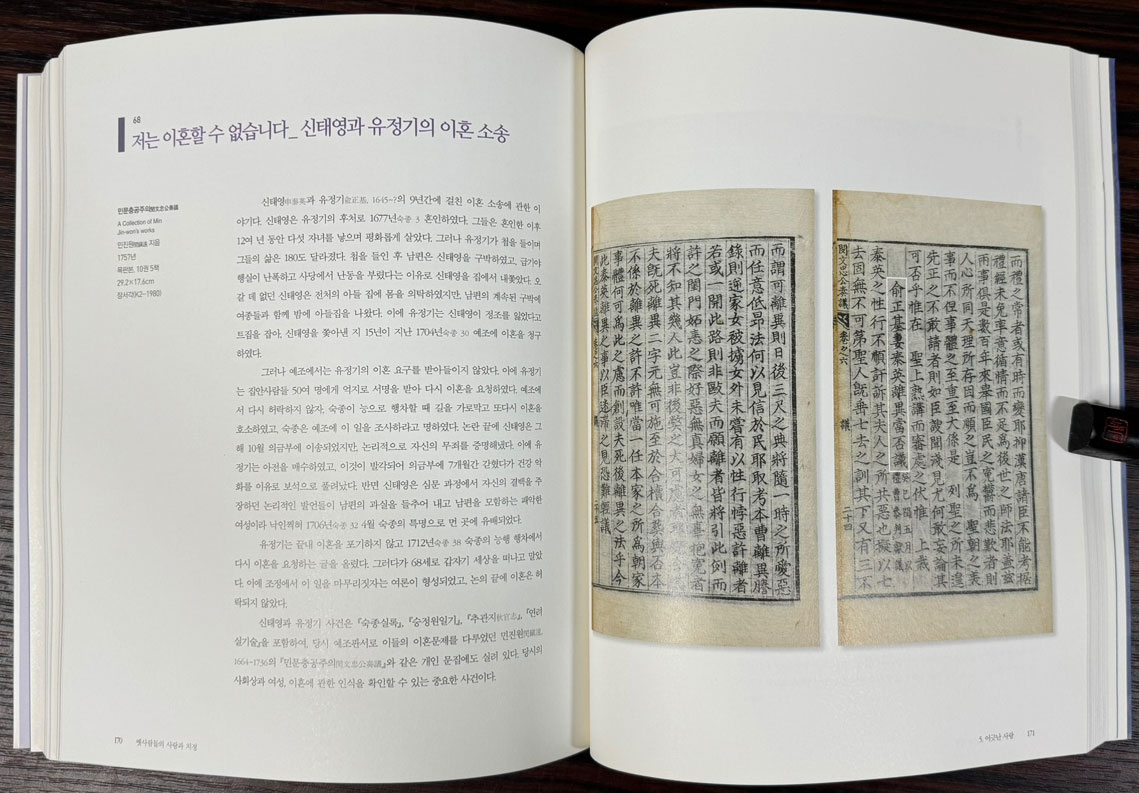 68
저는 이혼할 수 없습니다_ 신태영과 유정기의 이혼 소송
민문충공주의閔文忠公奏議
A Collection of Min
Jin-won's works
민진원閔鎭遠 지음
1757년
목판본, 10권 5책
29.2×17.6cm
장서각(K2-1980)
신태영申泰英과 유정기兪正基, 1645~?의 9년간에 걸친 이혼 소송에 관한 이
야기다. 신태영은 유정기의 후처로 1677년숙종 3 혼인하였다. 그들은 혼인한 이후
12여 년 동안 다섯 자녀를 낳으며 평화롭게 살았다. 그러나 유정기가 첩을 들이며
그들의 삶은 180도 달라졌다. 첩을 들인 후 남편은 신태영을 구박하였고, 급기야
행실이 난폭하고 사당에서 난동을 부렸다는 이유로 신태영을 집에서 내쫓았다. 오
갈 데 없던 신태영은 전처의 아들 집에 몸을 의탁하였지만, 남편의 계속된 구박에
여종들과 함께 밤에 아들집을 나왔다. 이에 유정기는 신태영이 정조를 잃었다고
트집을 잡아, 신태영을 쫓아낸 지 15년이 지난 1704년숙종 30 예조에 이혼을 청구
하였다.
그러나 예조에서는 유정기의 이혼 요구를 받아들이지 않았다. 이에 유정기
는 집안사람들 50여 명에게 억지로 서명을 받아 다시 이혼을 요청하였다. 예조에
서 다시 허락하지 않자, 숙종이 능으로 행차할 때 길을 가로막고 또다시 이혼을
호소하였고, 숙종은 예조에 이 일을 조사하라고 명하였다. 논란 끝에 신태영은 그
해 10월 의금부에 이송되었지만, 논리적으로 자신의 무죄를 증명해냈다. 이에 유
정기는 아전을 매수하였고, 이것이 발각되어 의금부에 7개월간 갇혔다가 건강 악
화를 이유로 보석으로 풀려났다. 반면 신태영은 심문 과정에서 자신의 결백을 주
장하던 논리적인 발언들이 남편의 과실을 들추어 내고 남편을 모함하는 패악한
여성이라 낙인찍혀 1706년숙종 32 4월 숙종의 특명으로 먼 곳에 유배되었다.
유정기는 끝내 이혼을 포기하지 않고 1712년숙종 38 숙종의 능행 행차에서
다시 이혼을 요청하는 글을 올렸다. 그러다가 68세로 갑자기 세상을 떠나고 말았
다. 이에 조정에서 이 일을 마무리짓자는 여론이 형성되었고, 논의 끝에 이혼은 허
락되지 않았다.
신태영과 유정기 사건은 『숙종실록』, 『승정원일기』, 『추관지秋官志』, 『연려
실기술』을 포함하여, 당시 예조판서로 이들의 이혼문제를 다루었던 민진원閔鎭遠,
1664~1736의 『민문충공주의閔文忠公奏議』와 같은 개인 문집에도 실려 있다. 당시의
사회상과 여성, 이혼에 관한 인식을 확인할 수 있는 중요한 사건이다.
170 옛사람들의 사랑과 치정
而禮之常者或有時而變耶抑漢唐諸臣不能考据
禮經未免率意循情而不足爲後世之師法耶蓋玆
兩事俱是數百年來擧國臣民之寃鬱而悲歎者則
人心所同天理所存因而順之豈不爲 聖朝之美
事而不但事體之至重至大係是 列聖之所未遑
先正之不敢請者則如臣謏聞淺見尤何敢妄論其
可否乎惟在 聖上熟講而審處之伏惟 上裁
兪正基妻泰英離異當否議
泰英之性行不順訐訴其夫人之所共惡也擬以七
去固無不可第聖人旣垂七去之訓其下又有三不
閔文忠公奏議 卷之六 議 二十四
而謂可離異則日後三尺之典將隨一時之所愛惡
而任意低昻法何以見信於民耶取考本曹離異謄
錄則逆家女被擄女外未嘗有以性行悖惡許離者
若或一開此路則非敺夫而願離者皆將引此例而
許之閨門妬 之際好惡無眞婦女之無辜抱寃者
將不知其幾人此豈非後弊之大可慮者
夫旣死離異二字元無可施至於合櫝合葬與否本
不係於離異之許不許唯當一任本家之所爲朝家
事體何可爲此之慮而創設夫死後離異之法乎今
此泰英離異之事以臣迷滯之見恐難 議
5. 어긋난 사랑 171